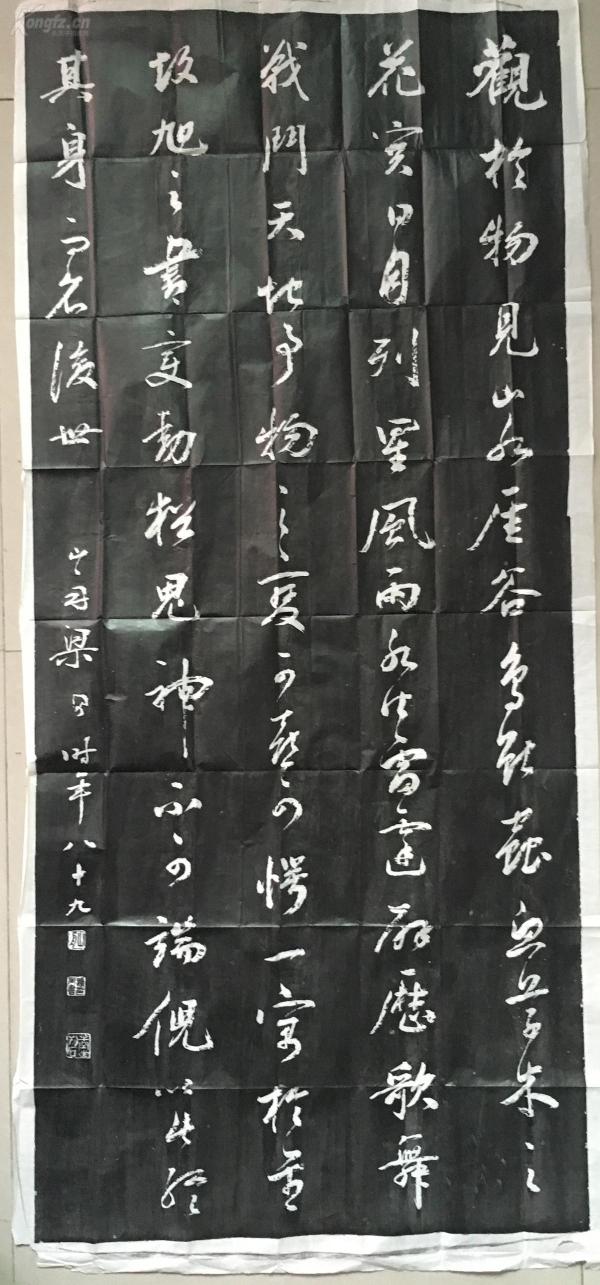 Kongfz.cn
觀於物見山水崖谷鳥獸蟲魚草木之
花實日月列星風雨水火雷霆霹靂歌舞
戰鬥天地事物之變可喜可愕一寓於書
故旭之書變動猶鬼神不可端倪以此終
其身而名後世
山舟梁同書時年八十九